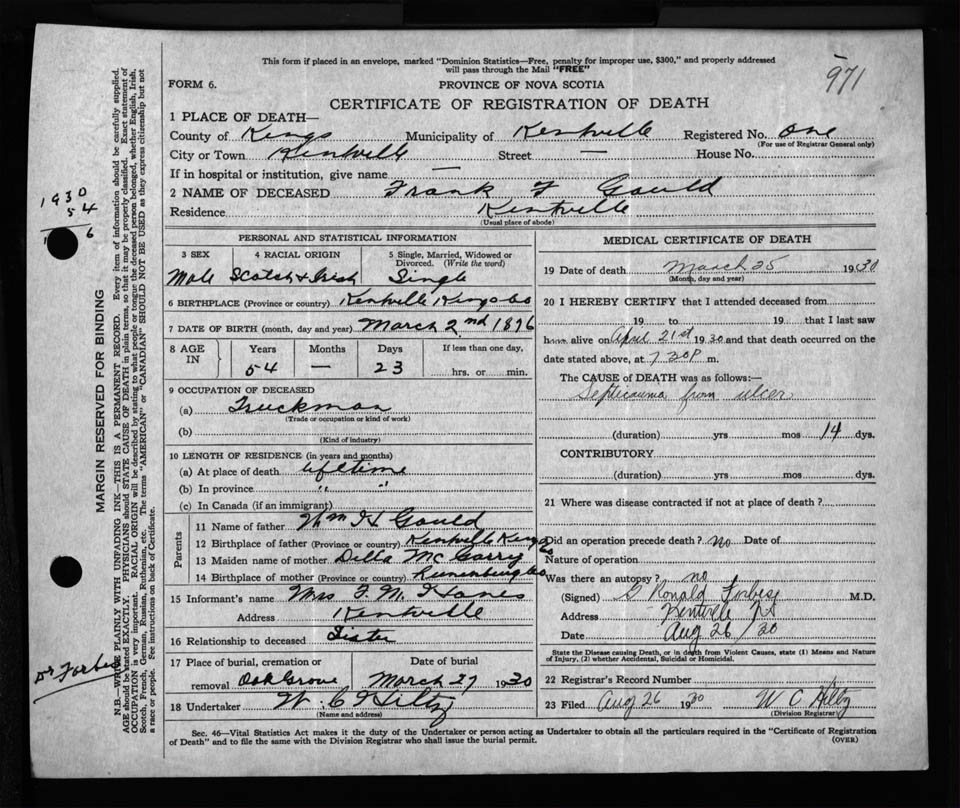 This form if placed in an envelope, marked "Dominion Statistics—Free, penalty for improper use, $300," and properly addressed
will pass through the Mail "FREE"
971
FORM 6.
PROVINCE OF NOVA SCOTIA
CERTIFICATE OF REGISTRATION OF DEATH
1 PLACE OF DEATH—
County of Kings Municipality of Kentville Registered No. one
(For use of Registrar General only)
City or Town Kentville Street — House No.
If in hospital or institution, give name —
2 NAME OF DECEASED Frank F Gould
Residence Kentville
(Usual place of abode)
PERSONAL AND STATISTICAL INFORMATION
3 SEX 4 RACIAL ORIGIN 5 Single, Married, Widowed or Divorced. (Write the word)
Male Scotch & Irish Single
6 BIRTHPLACE (Province or country) Kentville Kings Co
7 DATE OF BIRTH (month, day and year) March 2nd 1876
8 AGE IN Years Months Days If less than one day,
54 — 23 hrs. or min.
9 OCCUPATION OF DECEASED
(a) Truckman
(Trade or occupation or kind of work)
(b)
(Kind of industry)
10 LENGTH OF RESIDENCE (in years and months)
(a) At place of death lifetime
(b) In province " "
(c) In Canada (if an immigrant)
Parents
11 Name of father Wm H Gould
12 Birthplace of father (Province or country) Kentville Kings Co
13 Maiden name of mother Della McGarry
14 Birthplace of mother (Province or country) Lunenburg Co
15 Informant's name Mrs F. M.
Address Kentville
16 Relationship to deceased Sister
17 Place of burial, cremation or removal Date of burial
Oak Grove March 27 1930
18 Undertaker W. C Hiltz
(Name and address)
MEDICAL CERTIFICATE OF DEATH
19 Date of death March 25 1930
(Month, day and year)
20 I HEREBY CERTIFY that I attended deceased from
19 to 19 that I last saw
alive on April 21st 1930 and that death occurred on the
date stated above, at 7 20P m.
The CAUSE of DEATH was as follows:—
Septicaemia from ulcer
(duration) yrs mos 14 dys.
CONTRIBUTORY
(duration) yrs mos dys.
21 Where was disease contracted if not at place of death?
Did an operation precede death? no Date of
Nature of operation
Was there an autopsy? no
(Signed) G Ronald Forbes M.D.
Address Kentville NS
Date Aug 26/30
State the Disease causing Death, or in death from Violent Causes, state (1) Means and Nature
of Injury, (2) whether Accidental, Suicidal or Homicidal.
22 Registrar's Record Number
23 Filed Aug 26 1930 W C Hiltz
(Division Registrar)
Sec. 46—Vital Statistics Act makes it the duty of the Undertaker or person acting as Undertaker to obtain all the particulars required in the "Certificate of Registration
of Death" and to file the same with the Division Registrar who shall issue the burial permit.
(OVER)
MARGIN RESERVED FOR BINDING
N.B.—WRITE PLAINLY WITH UNFADING INK—THIS IS A PERMANENT RECORD. Every item of information should be carefully supplied.
AGE should be stated EXACTLY. PHYSICIANS should STATE CAUSE OF DEATH in plain terms, so that it may be properly classified. Exact statement of
OCCUPATION is very important. RACIAL ORIGIN will be described by stating to what people or tongue the deceased person belonged, whether English, Irish,
Scotch, French, German, Russian, Ruthenian, etc. The terms "AMERICAN" or "CANADIAN" SHOULD NOT BE USED as they express citizenship but not
a race or people. See instructions on back of Certificate.
1930
54
Dr Forbes